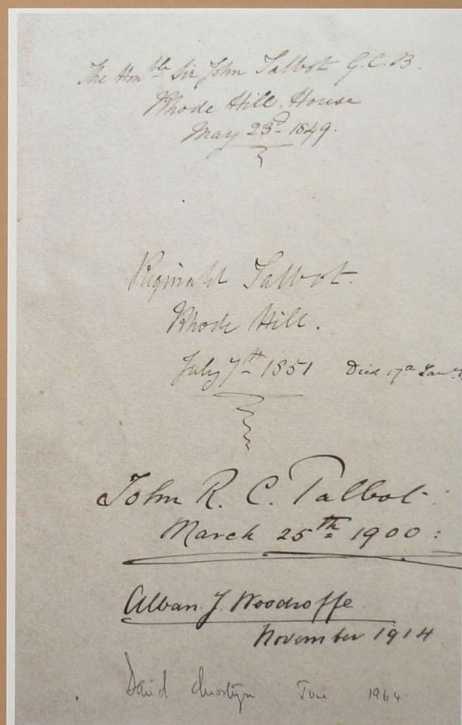 The Honble Sir John Talbot G.C.B.
Rhode Hill House
May 23d 1849.
Reginald Talbot.
Rhode Hill.
July 7th 1851 Died 17th Jan.
John R. C. Talbot
March 25th 1900:
Alban J. Woodroffe
November 1914
David 1964